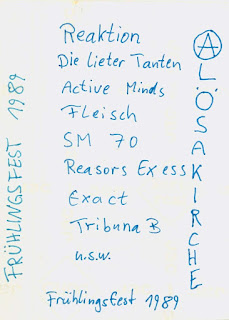 Reaktion
Die lieter Tanten
Active Minds
Fleisch
SM 70
Reasors Exess
Exact
Tribuna B
u.s.w.
Frühlingsfest 1989
FRÜHLINGSFEST 1989
ALÖSAKIRCHE